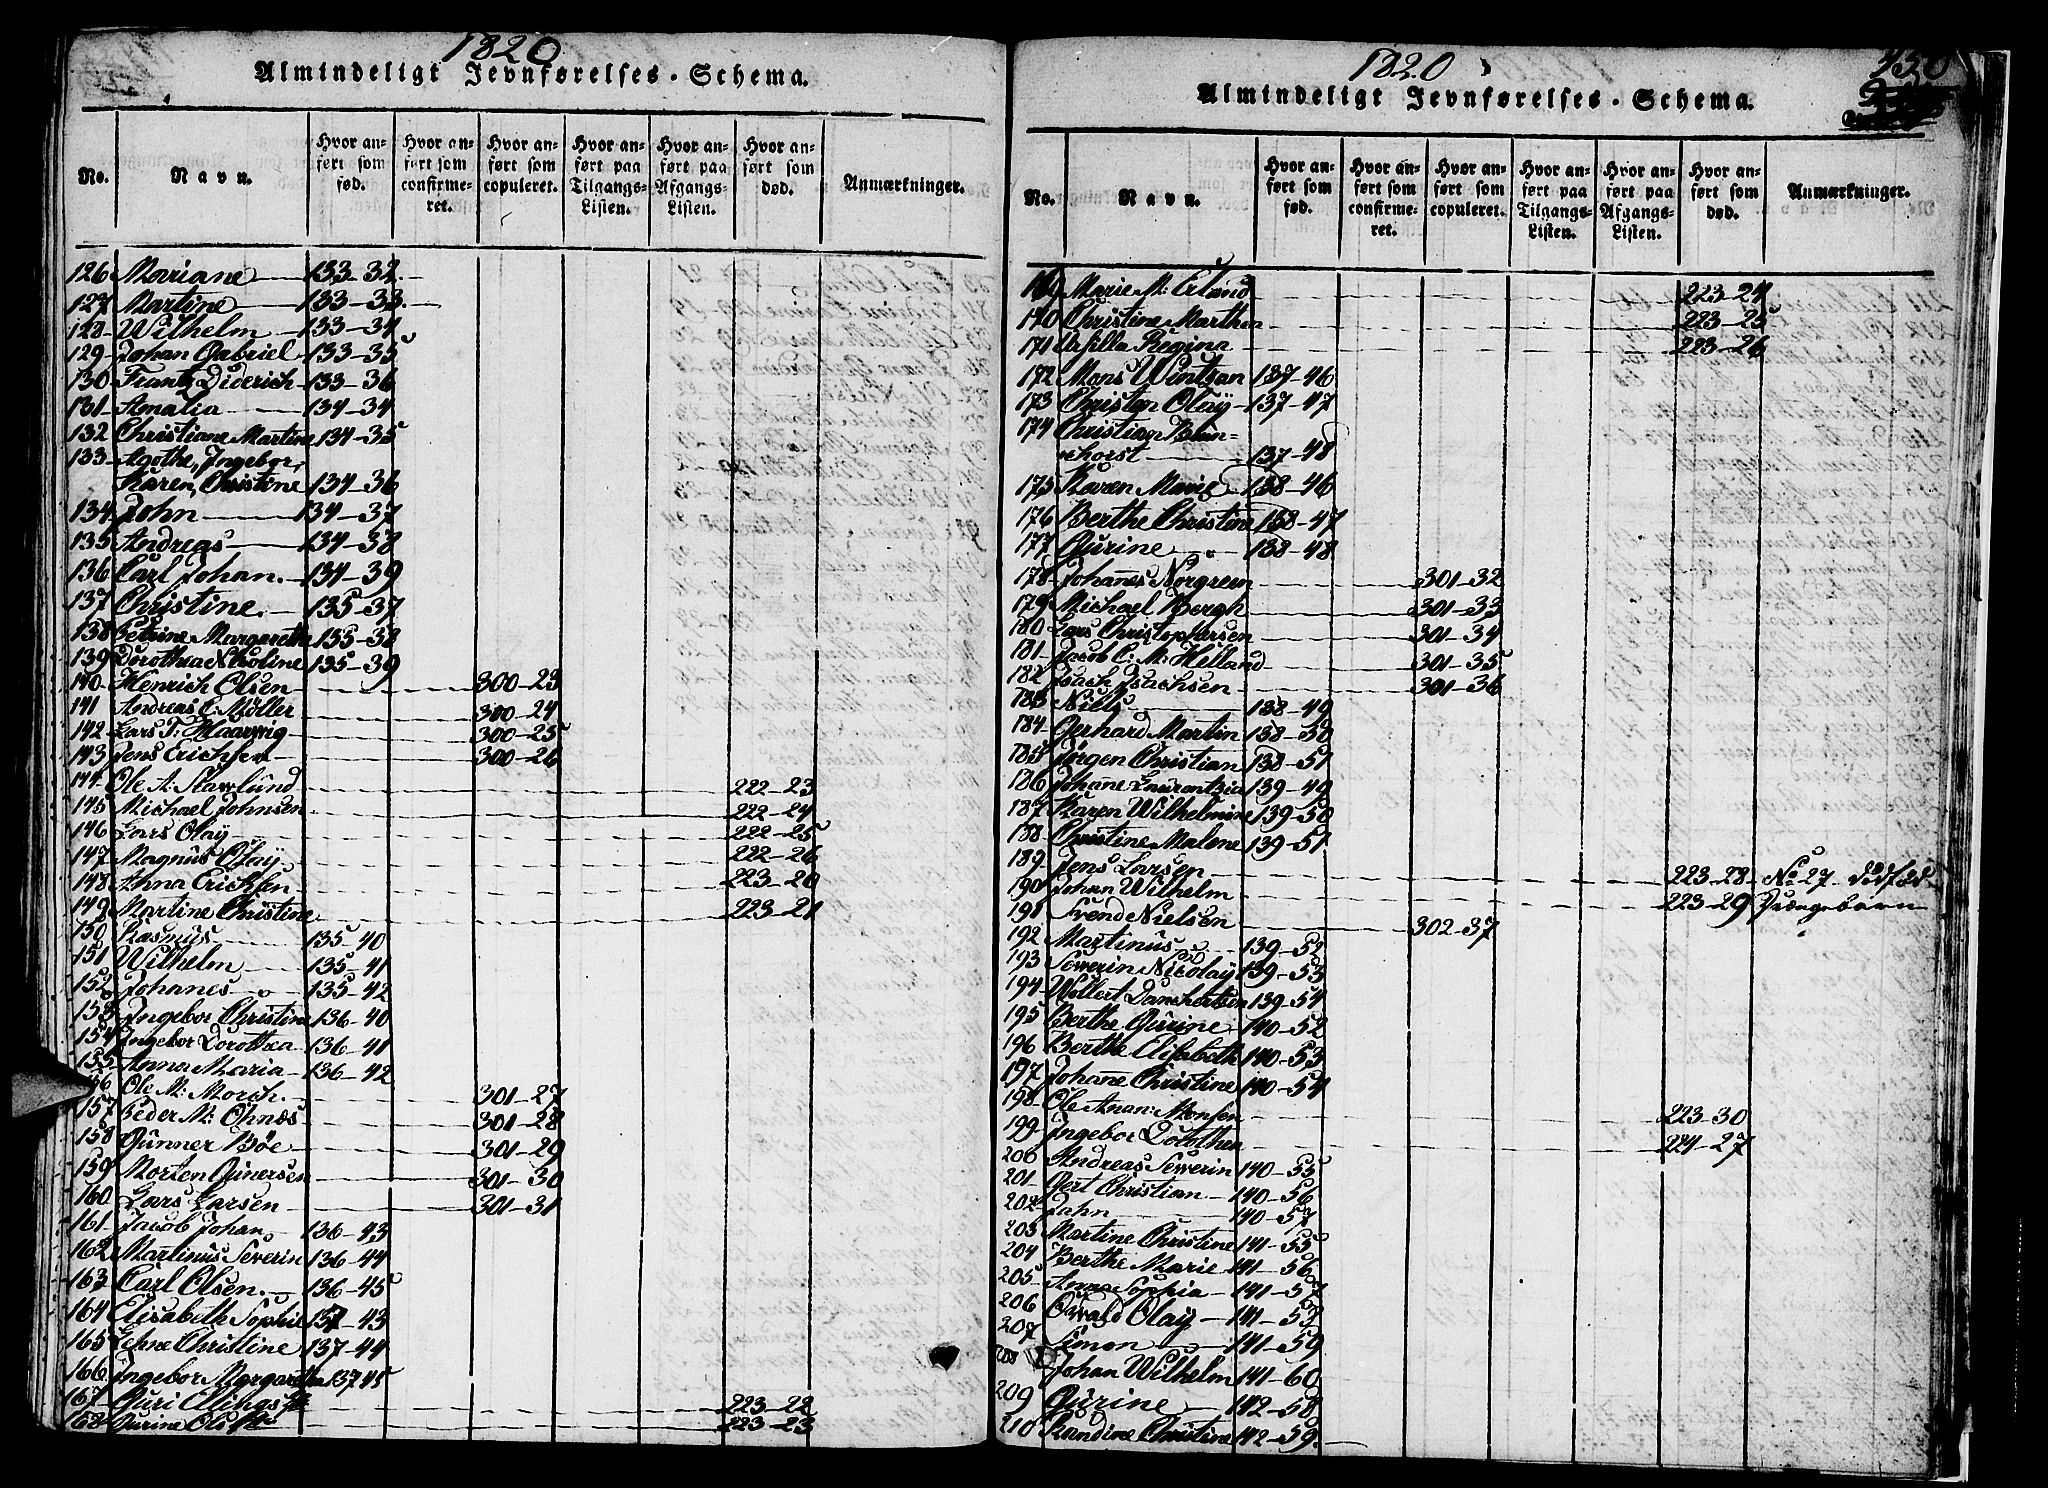 1820
Almindeligt Jevnførelses-Schema.
No.
Navn.
Hvor anført som fød.
Hvor anført som confirmeret.
Hvor anført som copuleret.
Hvor anført paa Tilgangs-Listen.
Hvor anført paa Afgangs-Listen.
Hvor anført som død.
Anmærkninger.
126 Mariane 133-32.
127 Martine 133-33.
128 Wilhelm 133-34
129 Johan Gabriel 133-35
130 Frantz Diderich 133-36
131 Amalia 134-34
132 Christiane Martine 134-35
133 Agothe, Ingebor,
Karen, Christine 134-36
134 John 134-37
135 Andreas 134-38
136 Carl Johan. 134-39
137 Christine. 135-37
138 Petrine Margaretha 135-38
139 Dorothea Nicoline 135-39
140 Henrich Olsen 300-23
141 Andreas C. Møller 300-24
142 Lars T. Haarvig 300-25
143 Jens Erichsen 300-26
144 Ole A. 222-23
145 Michael Johnsen 222-24
146 Lars Olay 222-25
147 Magnus Olay 222-26
148 Anna Ericksen 223-20
149 Martine Christine 223-21
150 Rasmus 135-40
151 Wilhelm 135-41
152 Johanes 135-42
153 Ingebor Christine 136-40
154 Ingebor Dorothea 136-41
155 Anna Maria 136-42
156 Ole M: Morch. 301-27
157 Peder M: Ohnæs 301-28
158 Gunner Bøe 301-29
159 Morten Gunersen 301-30
160 Lars Larsen 301-31
161 Jacob Johan 136-43
162 Martinus Severin 136-44
163 Carl Olsen. 136-45
164 Elisabeth Sophie 137-43
165 Lehne Christine 137-44
166 Ingebor Margaretha 137-45
167 Guri 223-22
168 Gurine Ols 223-23
1820
430
Almindeligt Jevnførelses-Schema.
No.
Navn.
Hvor anført som fød.
Hvor anført som confirmeret.
Hvor anført som copuleret.
Hvor anført paa Tilgangs-Listen.
Hvor anført paa Afgangs-Listen.
Hvor anført som død.
Anmærkninger.
169 Marie M: Erland 223-24
170 Christine Marthea 223-25
171 Ursilla Regina 223-26
172 Mons Wintzan 137-46
173 Christen Olay 137-47
174 Christian
horst 137-48
175 Karen Marie 138-46
176 Berthe Christine 138-47
177 Gurine 138-48
178 Johanes Norgreen 301-32
179 Michael Bergh 301-33
180 Lars Christophersen 301-34
181 Jacob C: M: Helland 301-35
182 Isach Isachsen 301-36
183 Niels 138-49
184 Gerhard Martin 138-50
185 Jørgen Christian 138-51
186 Johanne Laurentzia 139-49
187 Karen Wilhelmine 139-50
188 Christine Malene 139-51
189 Jens Larsen 223-28 No 27 dødfød
190 Johan Wilhelm 223-29 Drængebarn
191 Svend Nielsen 302-37
192 Martinus 139-52
193 Severin Nicolay 139-53
194 Wollert Danchertsen 139-54
195 Berthe Gurine 140-52
196 Berthe Elisabeth 140-53
197 Johanne Christine 140-54
198 Ole Anan: Monsen 223-30
199 Ingebor Dorothea 224-27
200 Andreas Severin 140-55
201 Gert Christian 140-56
202 Jahn 140-57
203 Martine Christine 141-55
204 Berthe Marie 141-56
205 Anna Sophia 141-57
206 Osvald Olay 141-53
207 Simon 141-59
208 Johan Wilhelm 141-60
209 Gurine 142-58
210 Randine Christine 142-59.